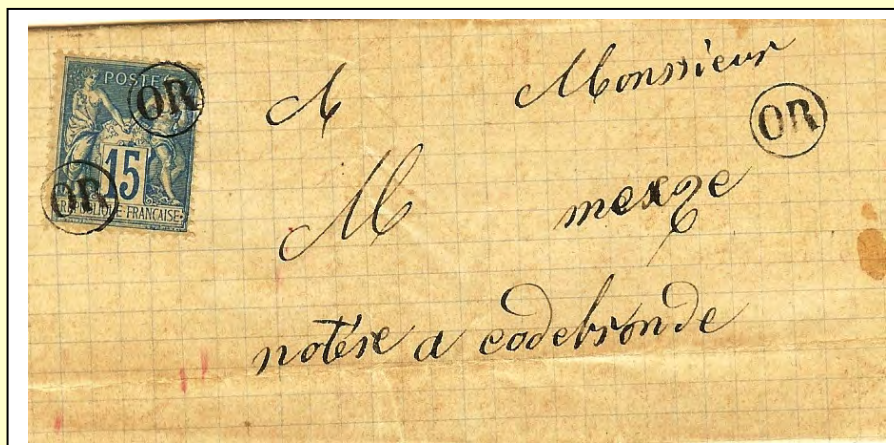 POSTE
OR
15
OR
REPUBLIQUE FRANÇAISE
A Monsieur
OR
M
notére a codebronde